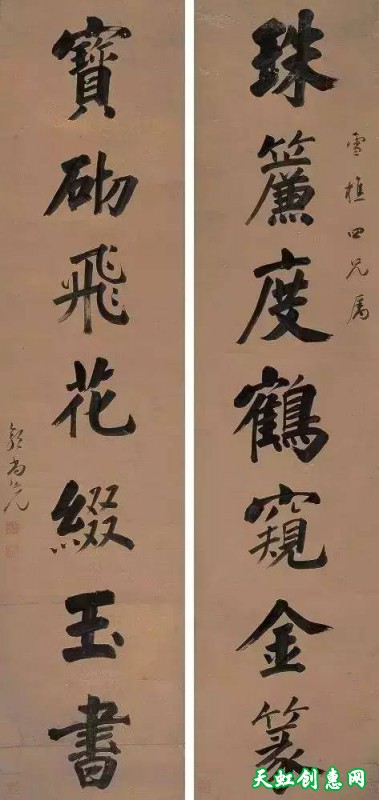 珠簾度鶴窺金篆
雪樵四兄屬
寶砌飛花綴玉書
郭尚先
天虹创惠网